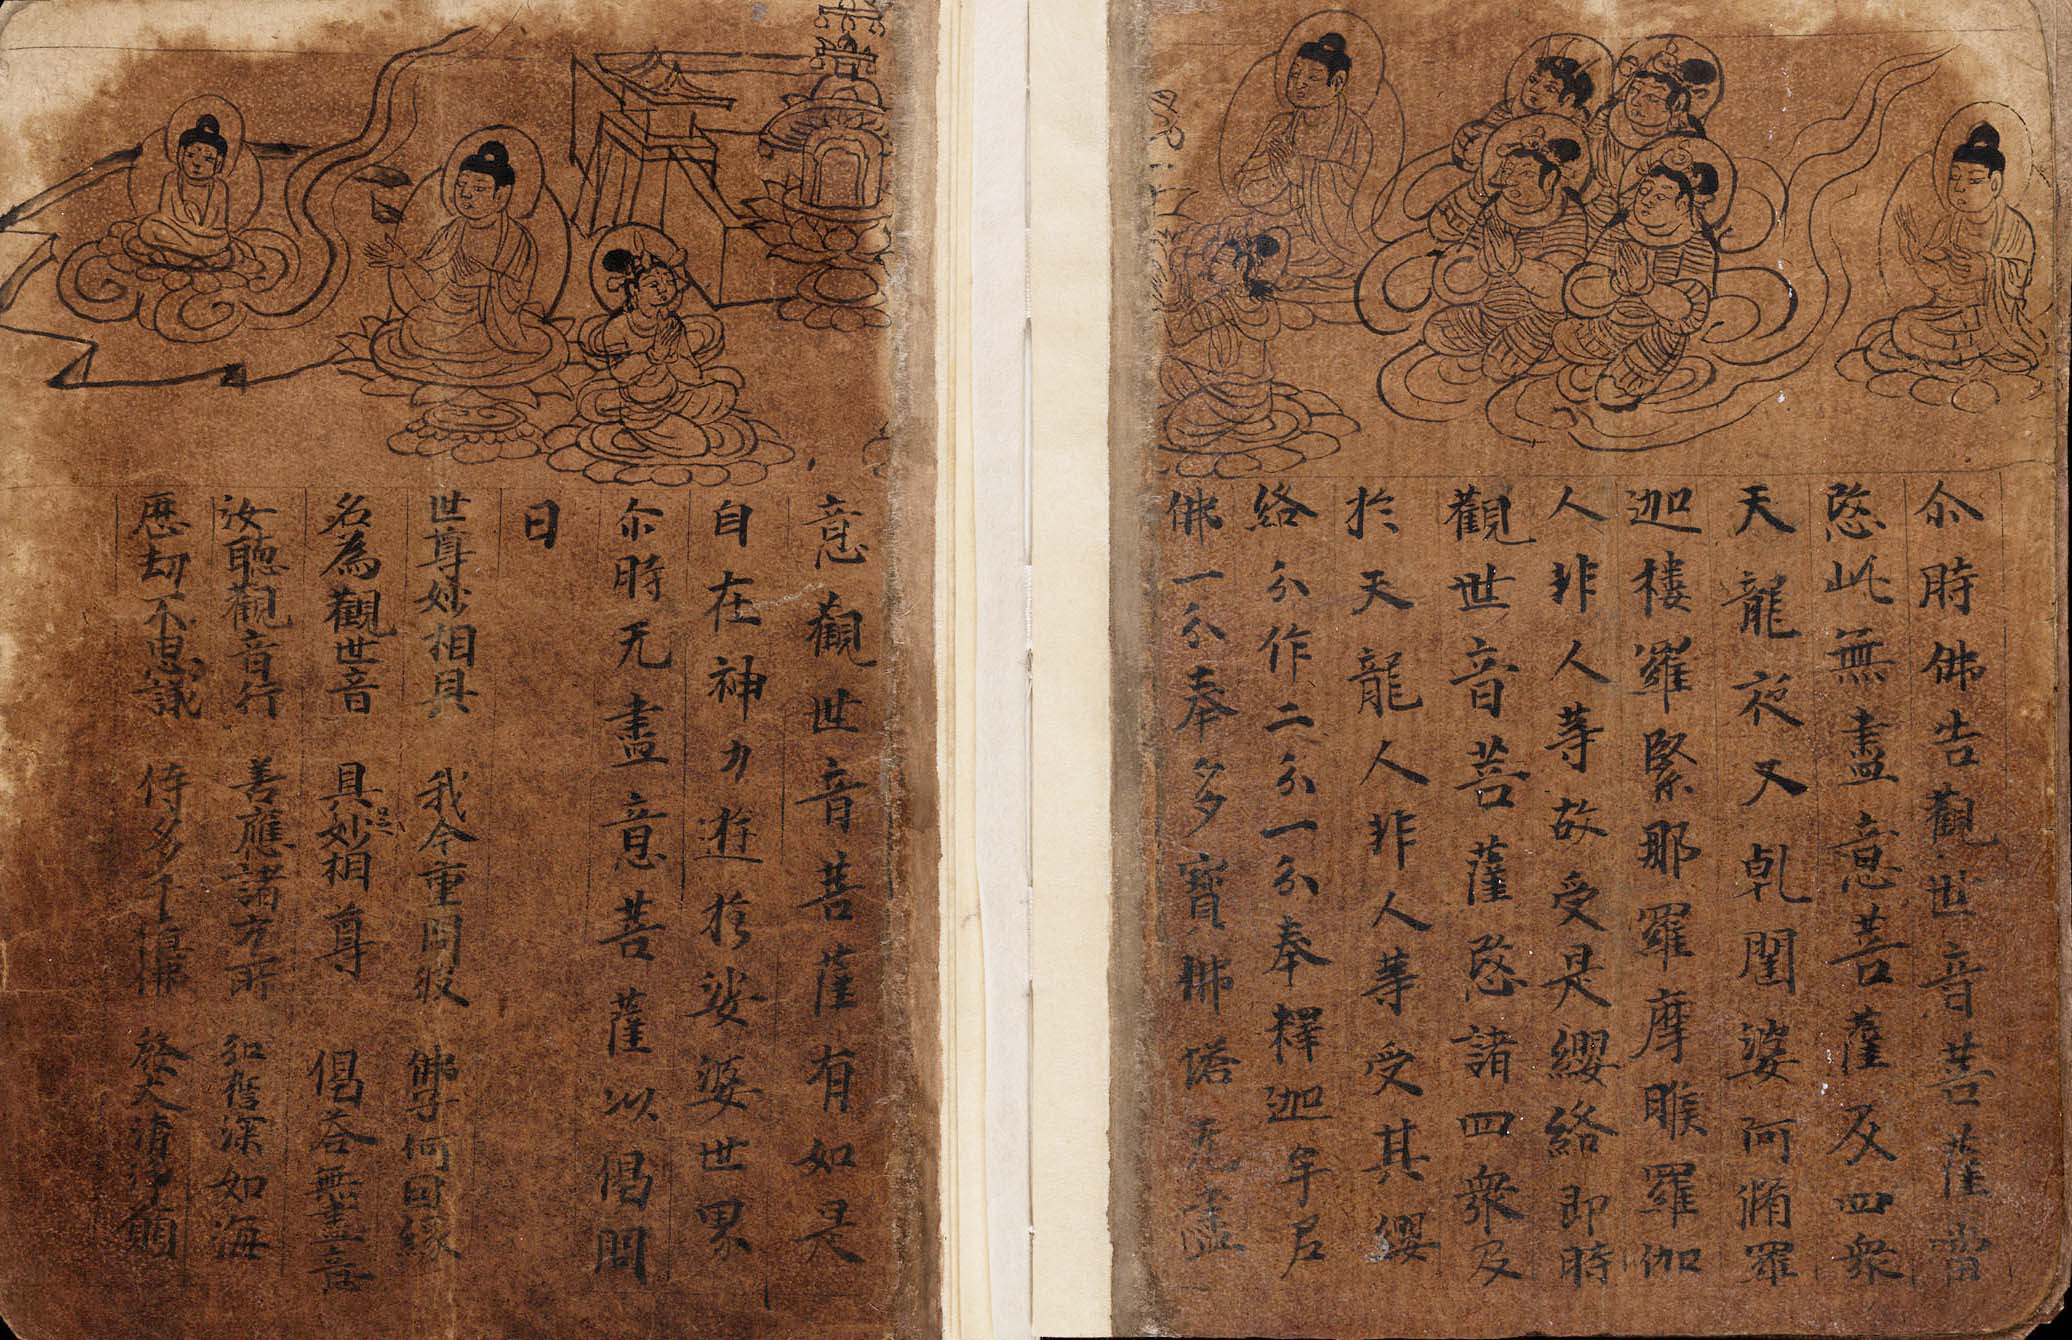 尒時佛告觀世音菩薩當
愍此無盡意菩薩及四衆
天龍夜叉乹闥婆阿脩羅
迦樓羅緊那羅摩睺羅伽
人非人等故受是纓絡即時
觀世音菩薩愍諸四衆及
於天龍人非人等受其纓
絡分作二分一分奉釋迦牟尼
佛一分奉多寶佛塔无盡
意觀世音菩薩有如是
自在神力遊於娑婆世界
尒時无盡意菩薩以偈問
曰
世尊妙相具 我今重問彼 佛子何因緣
名為觀世音 具足妙相尊 偈答無盡意
汝聽觀音行 善應諸方所 弘誓深如海
歷劫不思議 侍多千億佛 發大清淨願